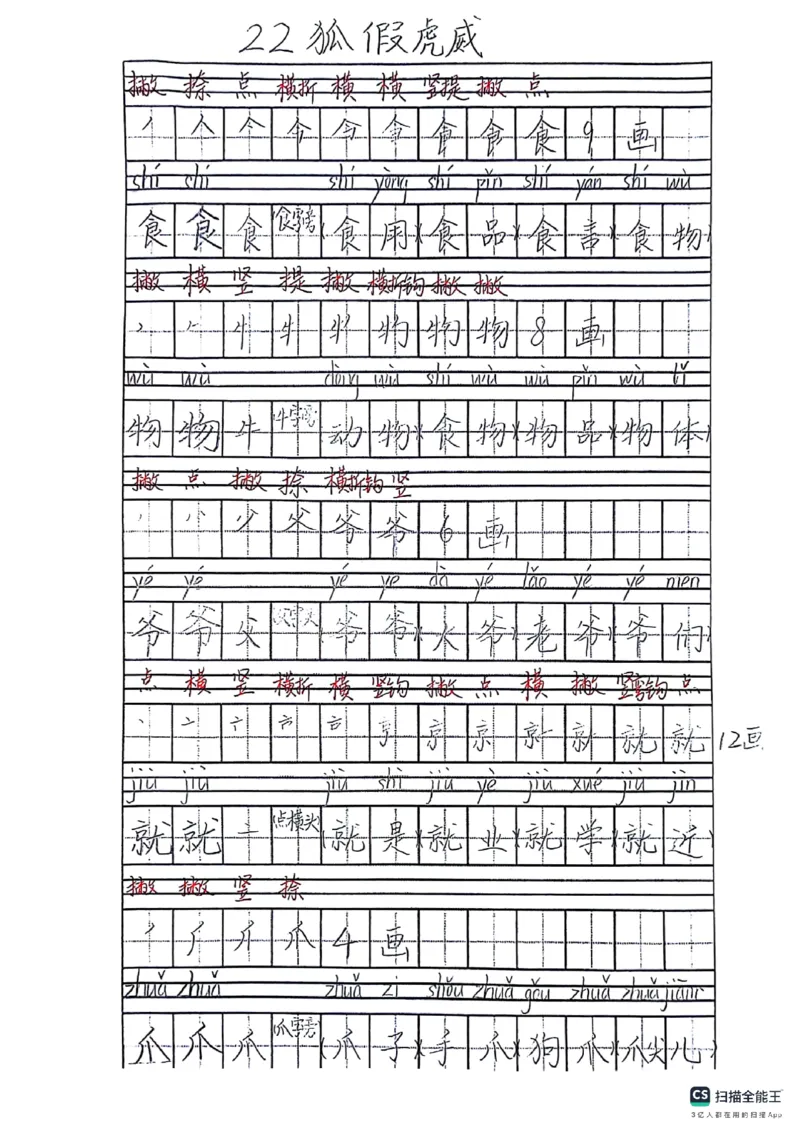 22 狐假虎威
撇 捺 点 横折 横 横 竖提 撇 点
食 食 食 9 画
shí shí shí yòng shí pǐn shí yán shí wù
食 食 食 (食字旁) (食 用) (食 品) (食 言) (食 物)
撇 横 竖 提 撇 横折钩 撇 撇
牛 物 物 8 画
wù wù dòng wù shí wù wù pǐn wù tǐ
物 物 牛 (牛字旁) (动 物) (食 物) (物 品) (物 体)
撇 点 撇 捺 横折钩 竖
父 爷 爷 6 画
yé yé yé ye dà yé lǎo yé yé men
爷 爷 父 (父字头) (爷 爷) (大 爷) (老 爷) (爷 们)
点 横 竖 横折 横 竖钩 撇 点 横 撇 竖弯钩 点
京 京 就 就 12画
jiù jiù jiù shì jiù yè jiù xué jiù jìn
就 就 亠 (点横头) (就 是) (就 业) (就 学) (就 近)
撇 撇 竖 捺
爪 4 画
zhuǎ zhuǎ zhuǎ zi shǒu zhuǎ gǒu zhuǎ zhuǎ jiānr
爪 爪 爪 (爪字旁) (爪 子) (手 爪) (狗 爪) (爪尖儿)
CS 扫描全能王
3亿人都在用的扫描App